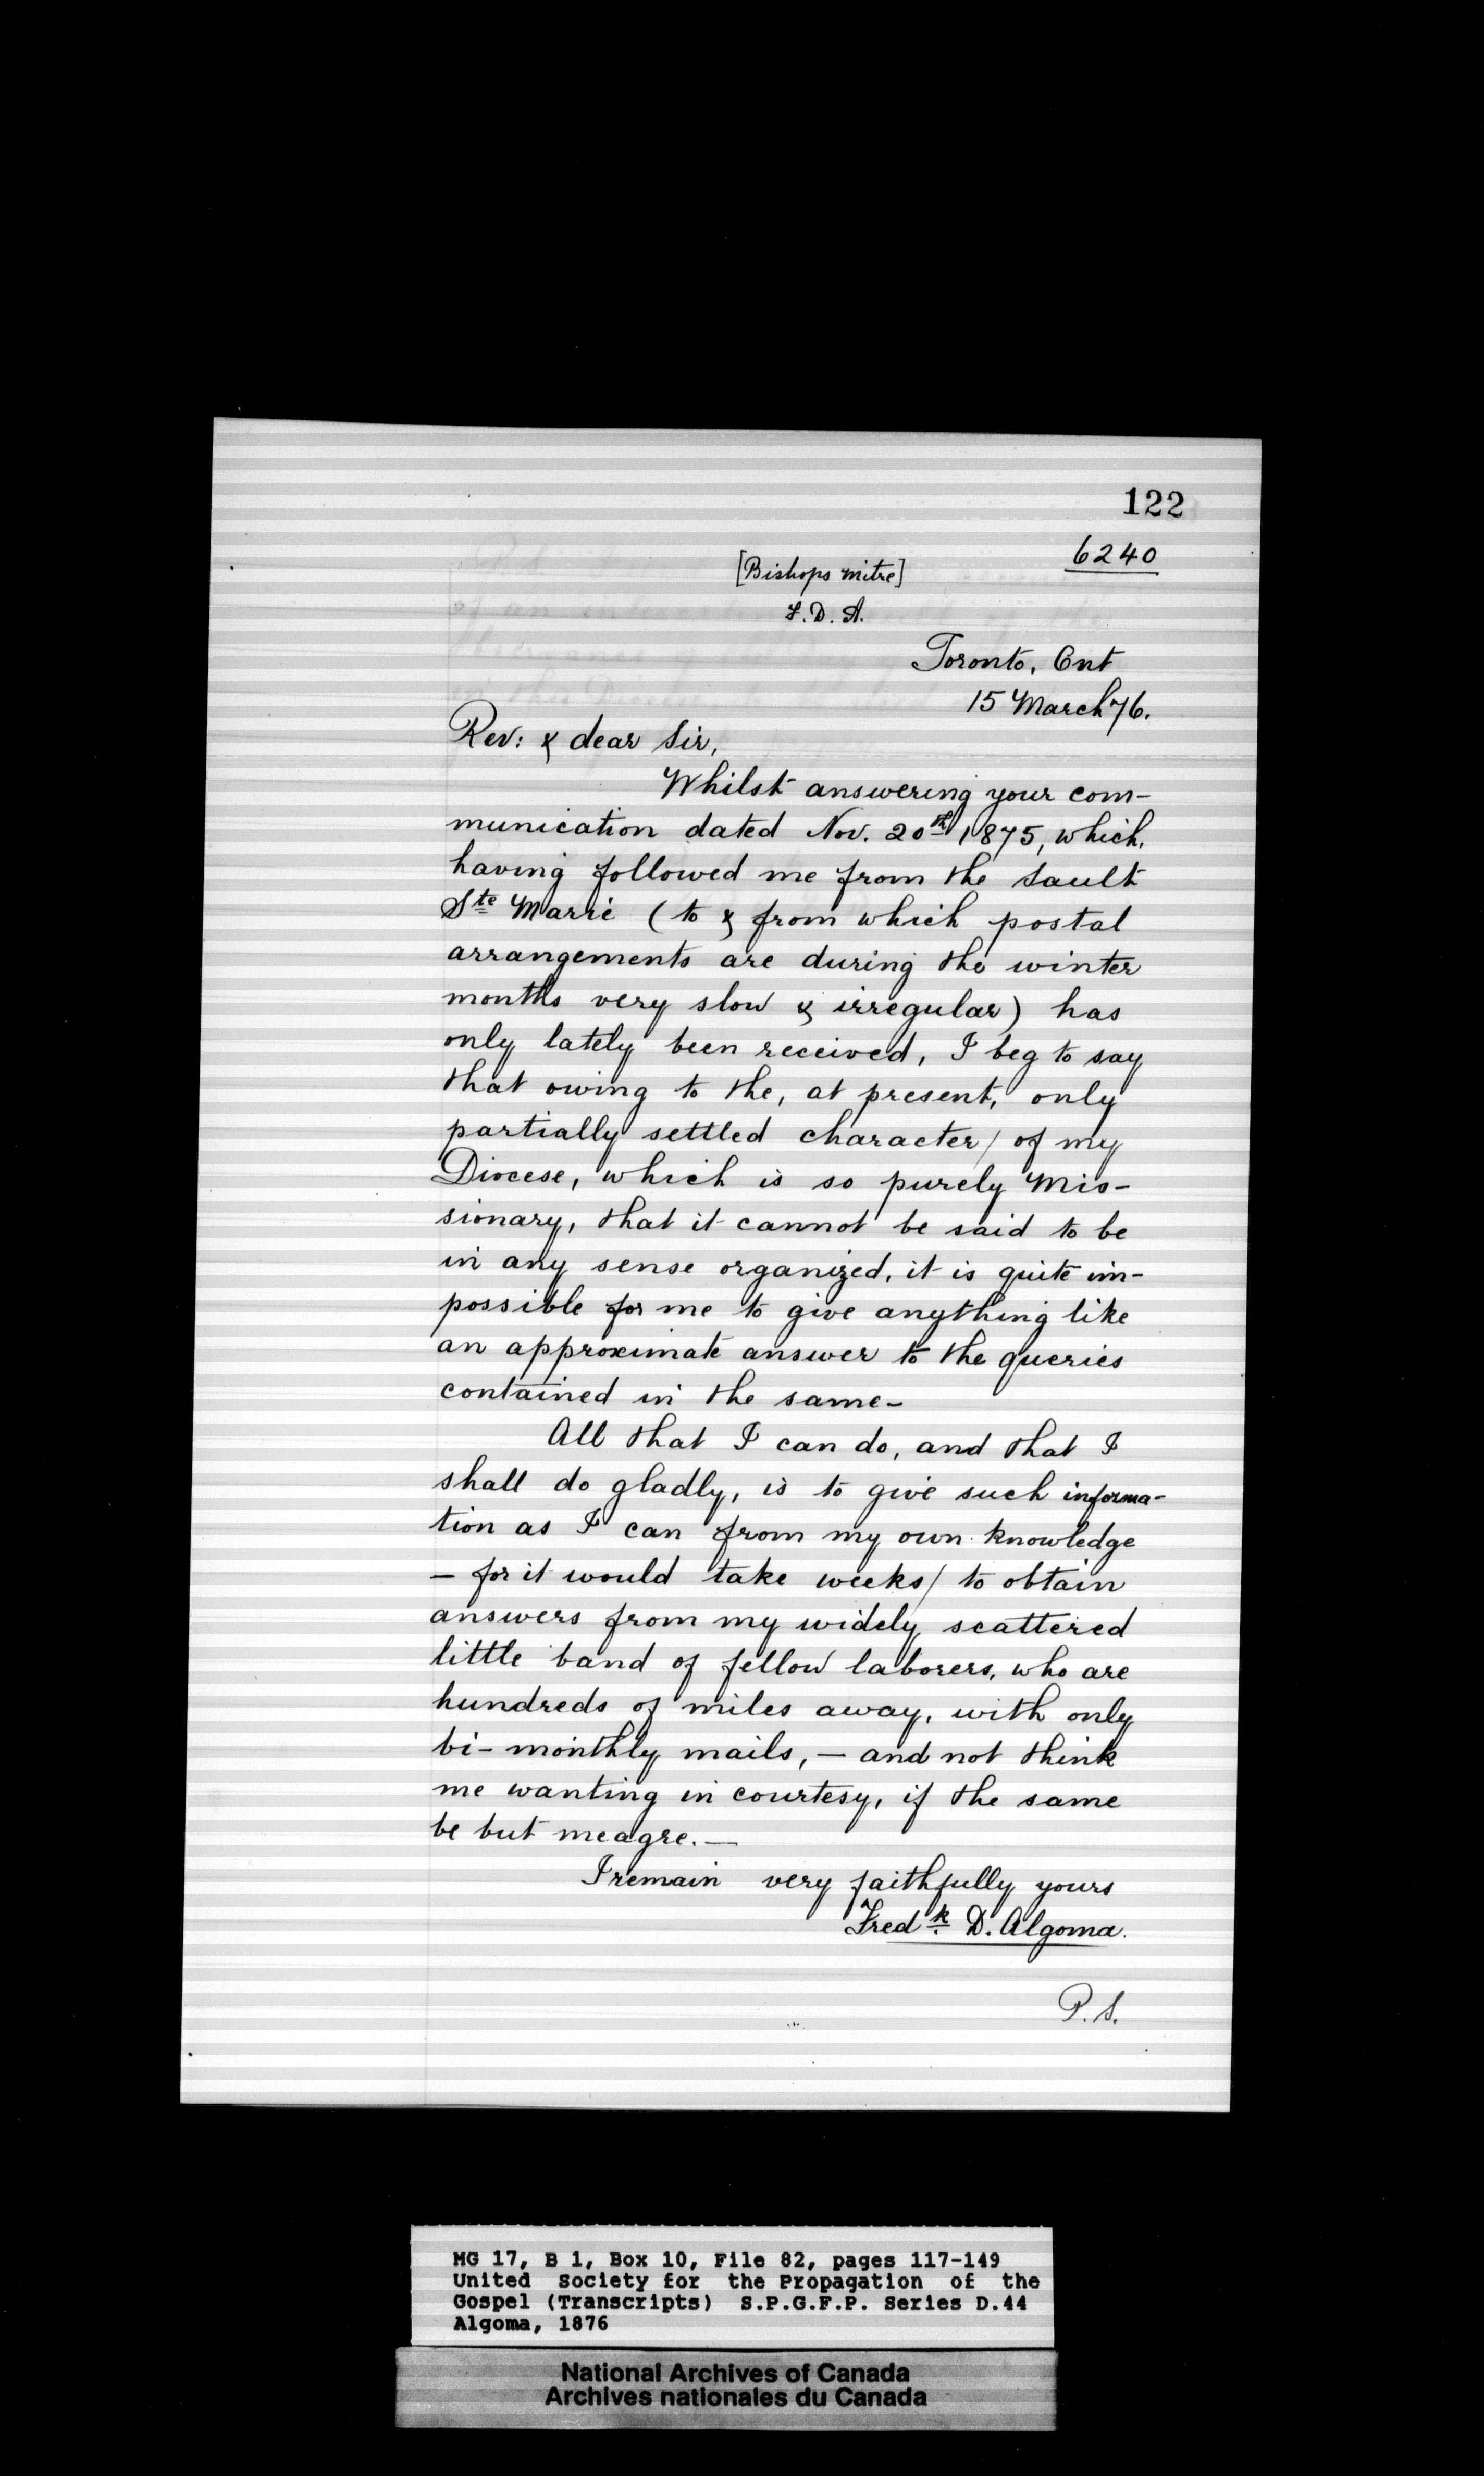 122
6240
[Bishops mitre]
F. D. A.
Toronto, Ont
15 March 76.
Rev: & dear Sir,
Whilst answering your com-
munication dated Nov. 20th 1875, which,
having followed me from the Sault
Ste Marie (to & from which postal
arrangements are during the winter
months very slow & irregular) has
only lately been received, I beg to say
that owing to the, at present, only
partially settled character / of my
Diocese, which is so purely Mis-
sionary, that it cannot be said to be
in any sense organized, it is quite im-
possible for me to give anything like
an approximate answer to the queries
contained in the same -
All that I can do, and that I
shall do gladly, is to give such informa-
tion as I can from my own knowledge
- for it would take weeks / to obtain
answers from my widely scattered
little band of fellow laborers, who are
hundreds of miles away, with only
bi-monthly mails, - and not think
me wanting in courtesy, if the same
be but meagre. -
I remain very faithfully yours
Fredk. D. Algoma.
P.S.
MG 17, B 1, Box 10, File 82, pages 117-149
United Society for the Propagation of the
Gospel (Transcripts) S.P.G.F.P. Series D.44
Algoma, 1876
National Archives of Canada
Archives nationales du Canada